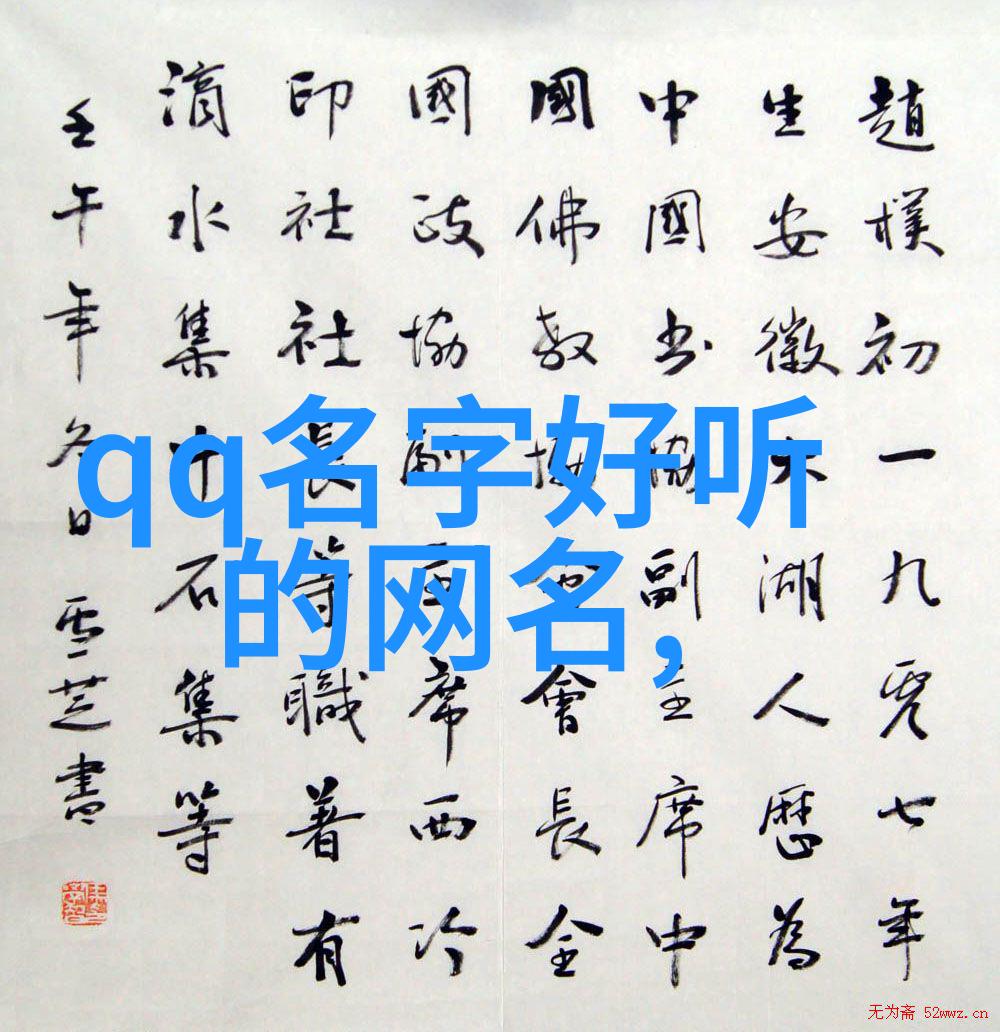 趙樸初一九零七年
生安徽太湖人歷為
中國书協副主席中
國佛教協會會長全
國政協副主席西泠
印社社長等職著有
滴水集片石集等
壬午年冬日 雪芝書
qq名字好听
的网名,
无为斋 52wwz.cn